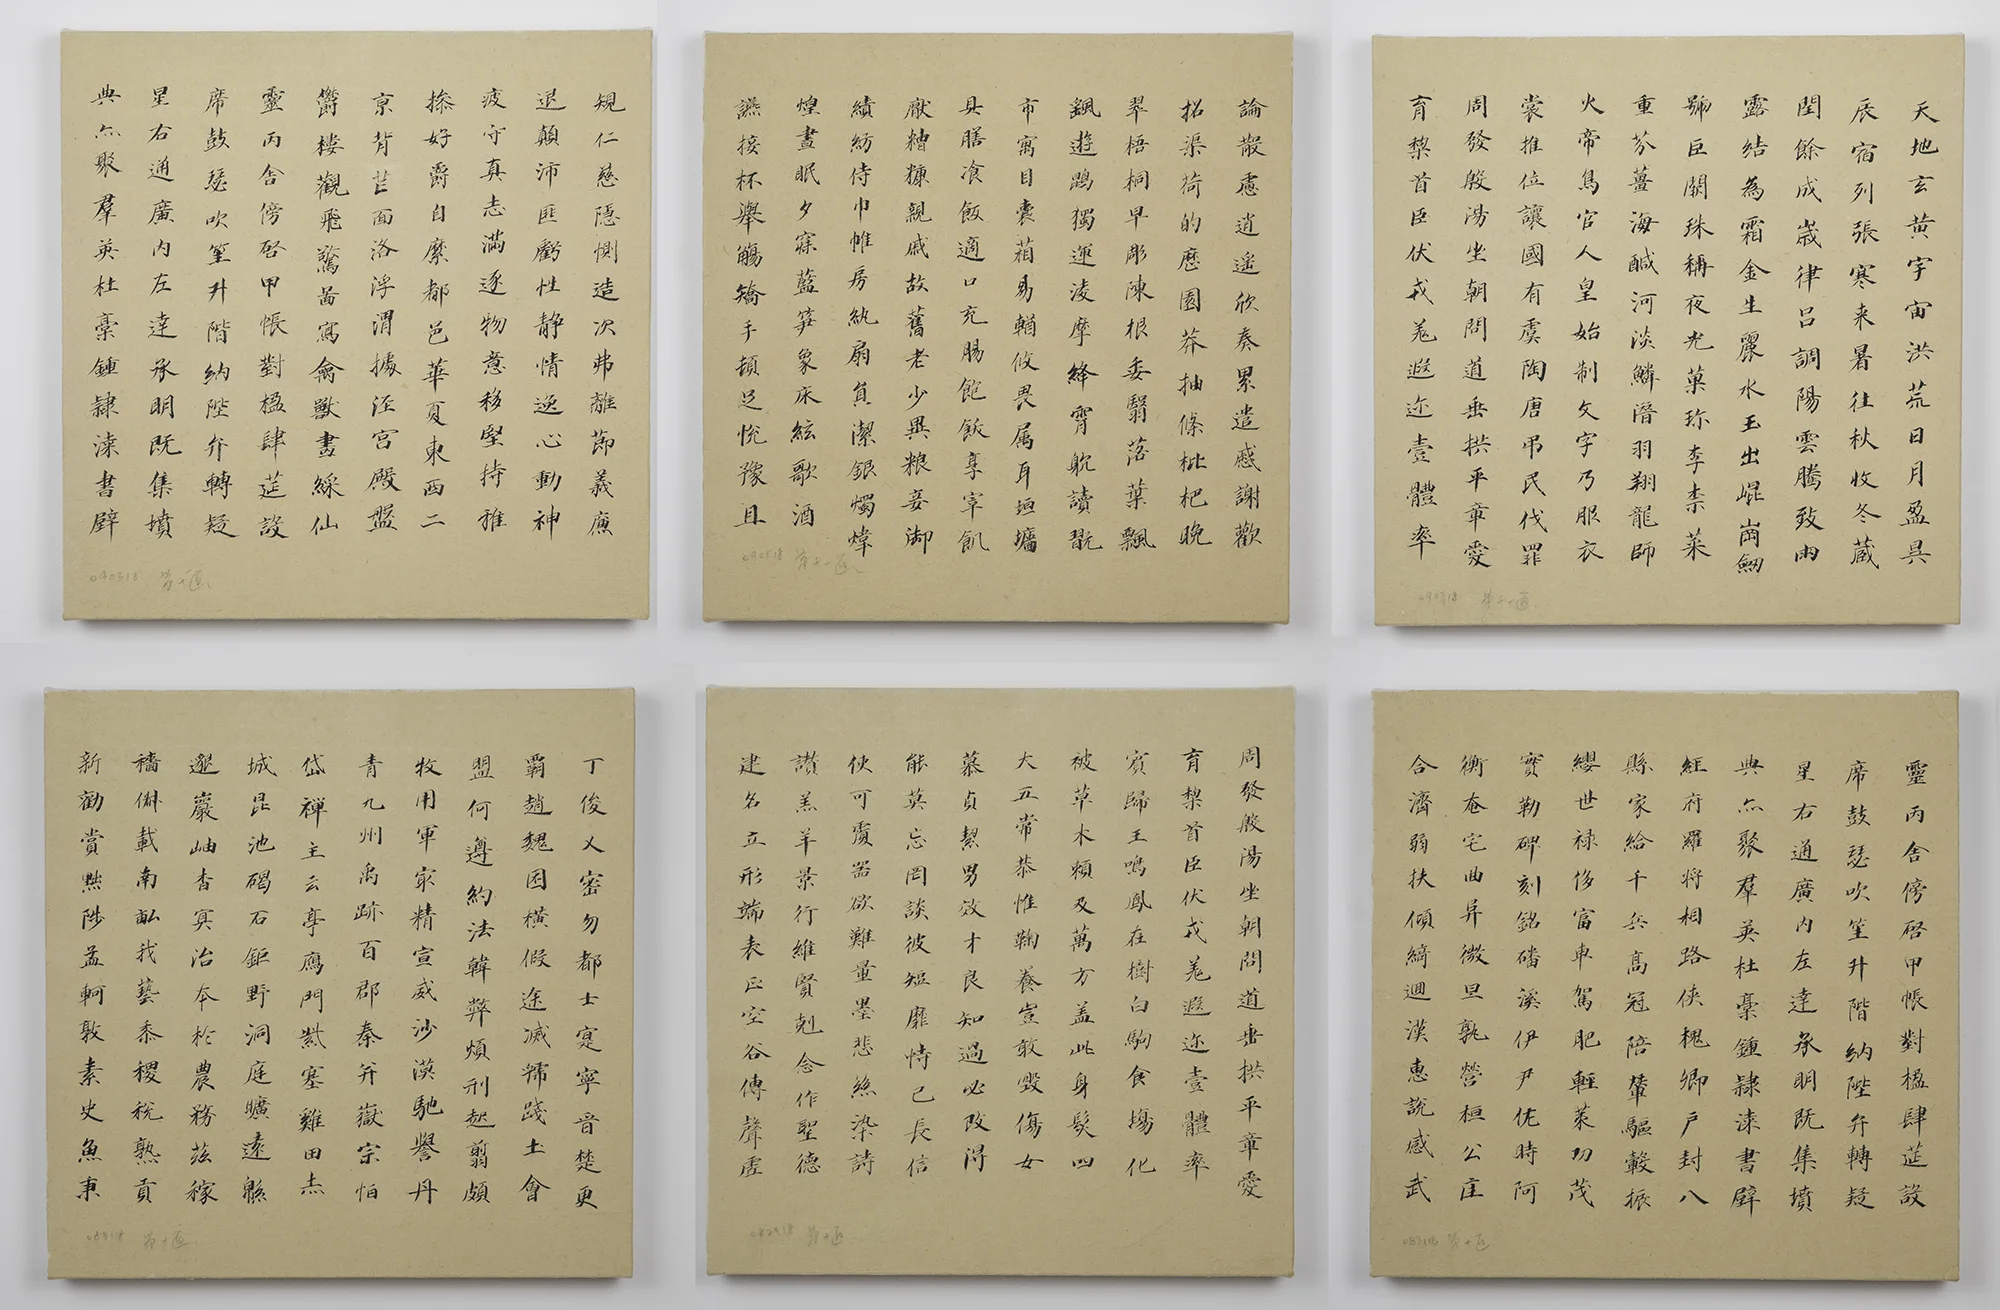 規仁慈隱惻造次弗離節義廉
退顛沛匪虧性静情逸心動神
疲守真志滿逐物意移堅持雅
操好爵自縻都邑華夏東西二
京背芒面洛浮渭據涇宮殿盤
鬱樓觀飛驚啚寫禽獸畫綵仙
靈丙舍傍啓甲帳對楹肆筵設
席鼓瑟吹笙升階納陛弁轉疑
星右通廣内左達承明既集墳
典亦聚羣英杜稾鍾隸漆書壁
090318 第十遍
論散慮逍遥欣奏累遣慼謝歡
招渠荷的歷園莽抽條枇杷晚
翠梧桐早彫陳根委翳落葉飄
颻遊鵾獨運凌摩絳霄躭讀翫
市寓目囊箱易輶攸畏属耳垣墻
具膳飡飯適口充腸飽飫享宰飢
厭糟糠親戚故舊老少異粮妾御
績紡侍巾帷房紈扇員潔銀燭煒
煌晝眠夕寐藍笋象床絃歌酒
讌接杯舉觴矯手頓足悦豫且
090518 第十一遍
天地玄黄宇宙洪荒日月盈昃
辰宿列張寒来暑往秋收冬蔵
閏餘成歲律吕調陽雲騰致雨
露結為霜金生麗水玉出崐崗劒
號巨闕珠稱夜光菓珎李柰菜
重芥薑海鹹河淡鱗潛羽翔龍師
火帝鳥官人皇始制文字乃服衣
裳推位讓國有虞陶唐弔民伐罪
周發殷湯坐朝問道垂拱平章愛
育黎首臣伏戎羌遐迩壹體率
090318 第十一遍
丁俊乂密勿都士寔寧晉楚更
霸趙魏困橫假途滅虢踐土會
盟何遵約法韓弊煩刑起翦頗
牧用軍冣精宣威沙漠馳譽丹
青九州禹跡百郡秦并嶽宗恒
岱禪主云亭鴈門紫塞雞田赤
城昆池碣石鉅野洞庭曠遠緜
邈巖岫杳冥治本於農務茲稼
穡俶載南畝我藝黍稷稅熟貢
新勸賞黜陟孟軻敦素史魚秉
083118 第十遍
周發殷湯坐朝問道垂拱平章愛
育黎首臣伏戎羌遐迩壹體率
賓歸王鳴鳳在樹白駒食場化
被草木賴及萬方盖此身髮四
大五常恭惟鞠養豈敢毀傷女
慕貞絜男效才良知過必改得
能莫忘罔談彼短靡恃己長信
使可覆器欲難量墨悲絲染詩
讃羔羊景行維賢剋念作聖德
建名立形端表正空谷傳聲虛
082918 第十遍
靈丙舍傍啓甲帳對楹肆筵設
席鼓瑟吹笙升階納陛弁轉疑
星右通廣内左達承明既集墳
典亦聚羣英杜稾鍾隸漆書壁
経府羅将相路俠槐卿户封八
縣家給千兵高冠陪輦驅轂振
纓世禄侈富車駕肥輕策功茂
實勒碑刻銘磻溪伊尹佐時阿
衡奄宅曲阜微旦孰營桓公匡
合濟弱扶傾綺迴漢惠說感武
第十遍